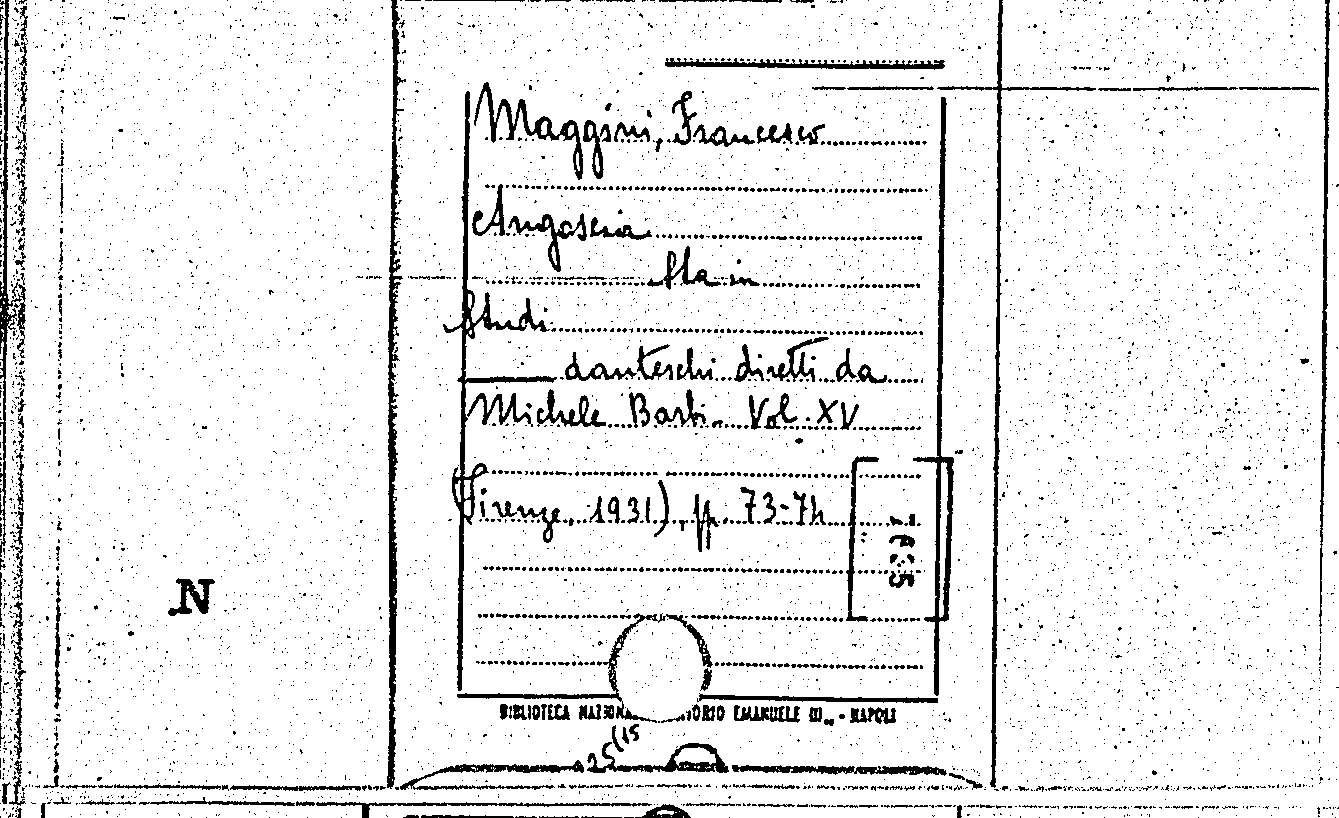 Maggini, Francesco
Angoscia
Sta in
Studi
danteschi diretti da
Michele Barbi. Vol. XV
(Firenze, 1931), pp. 73-74
N
BIBLIOTECA EMANUELE III - NAPOLI